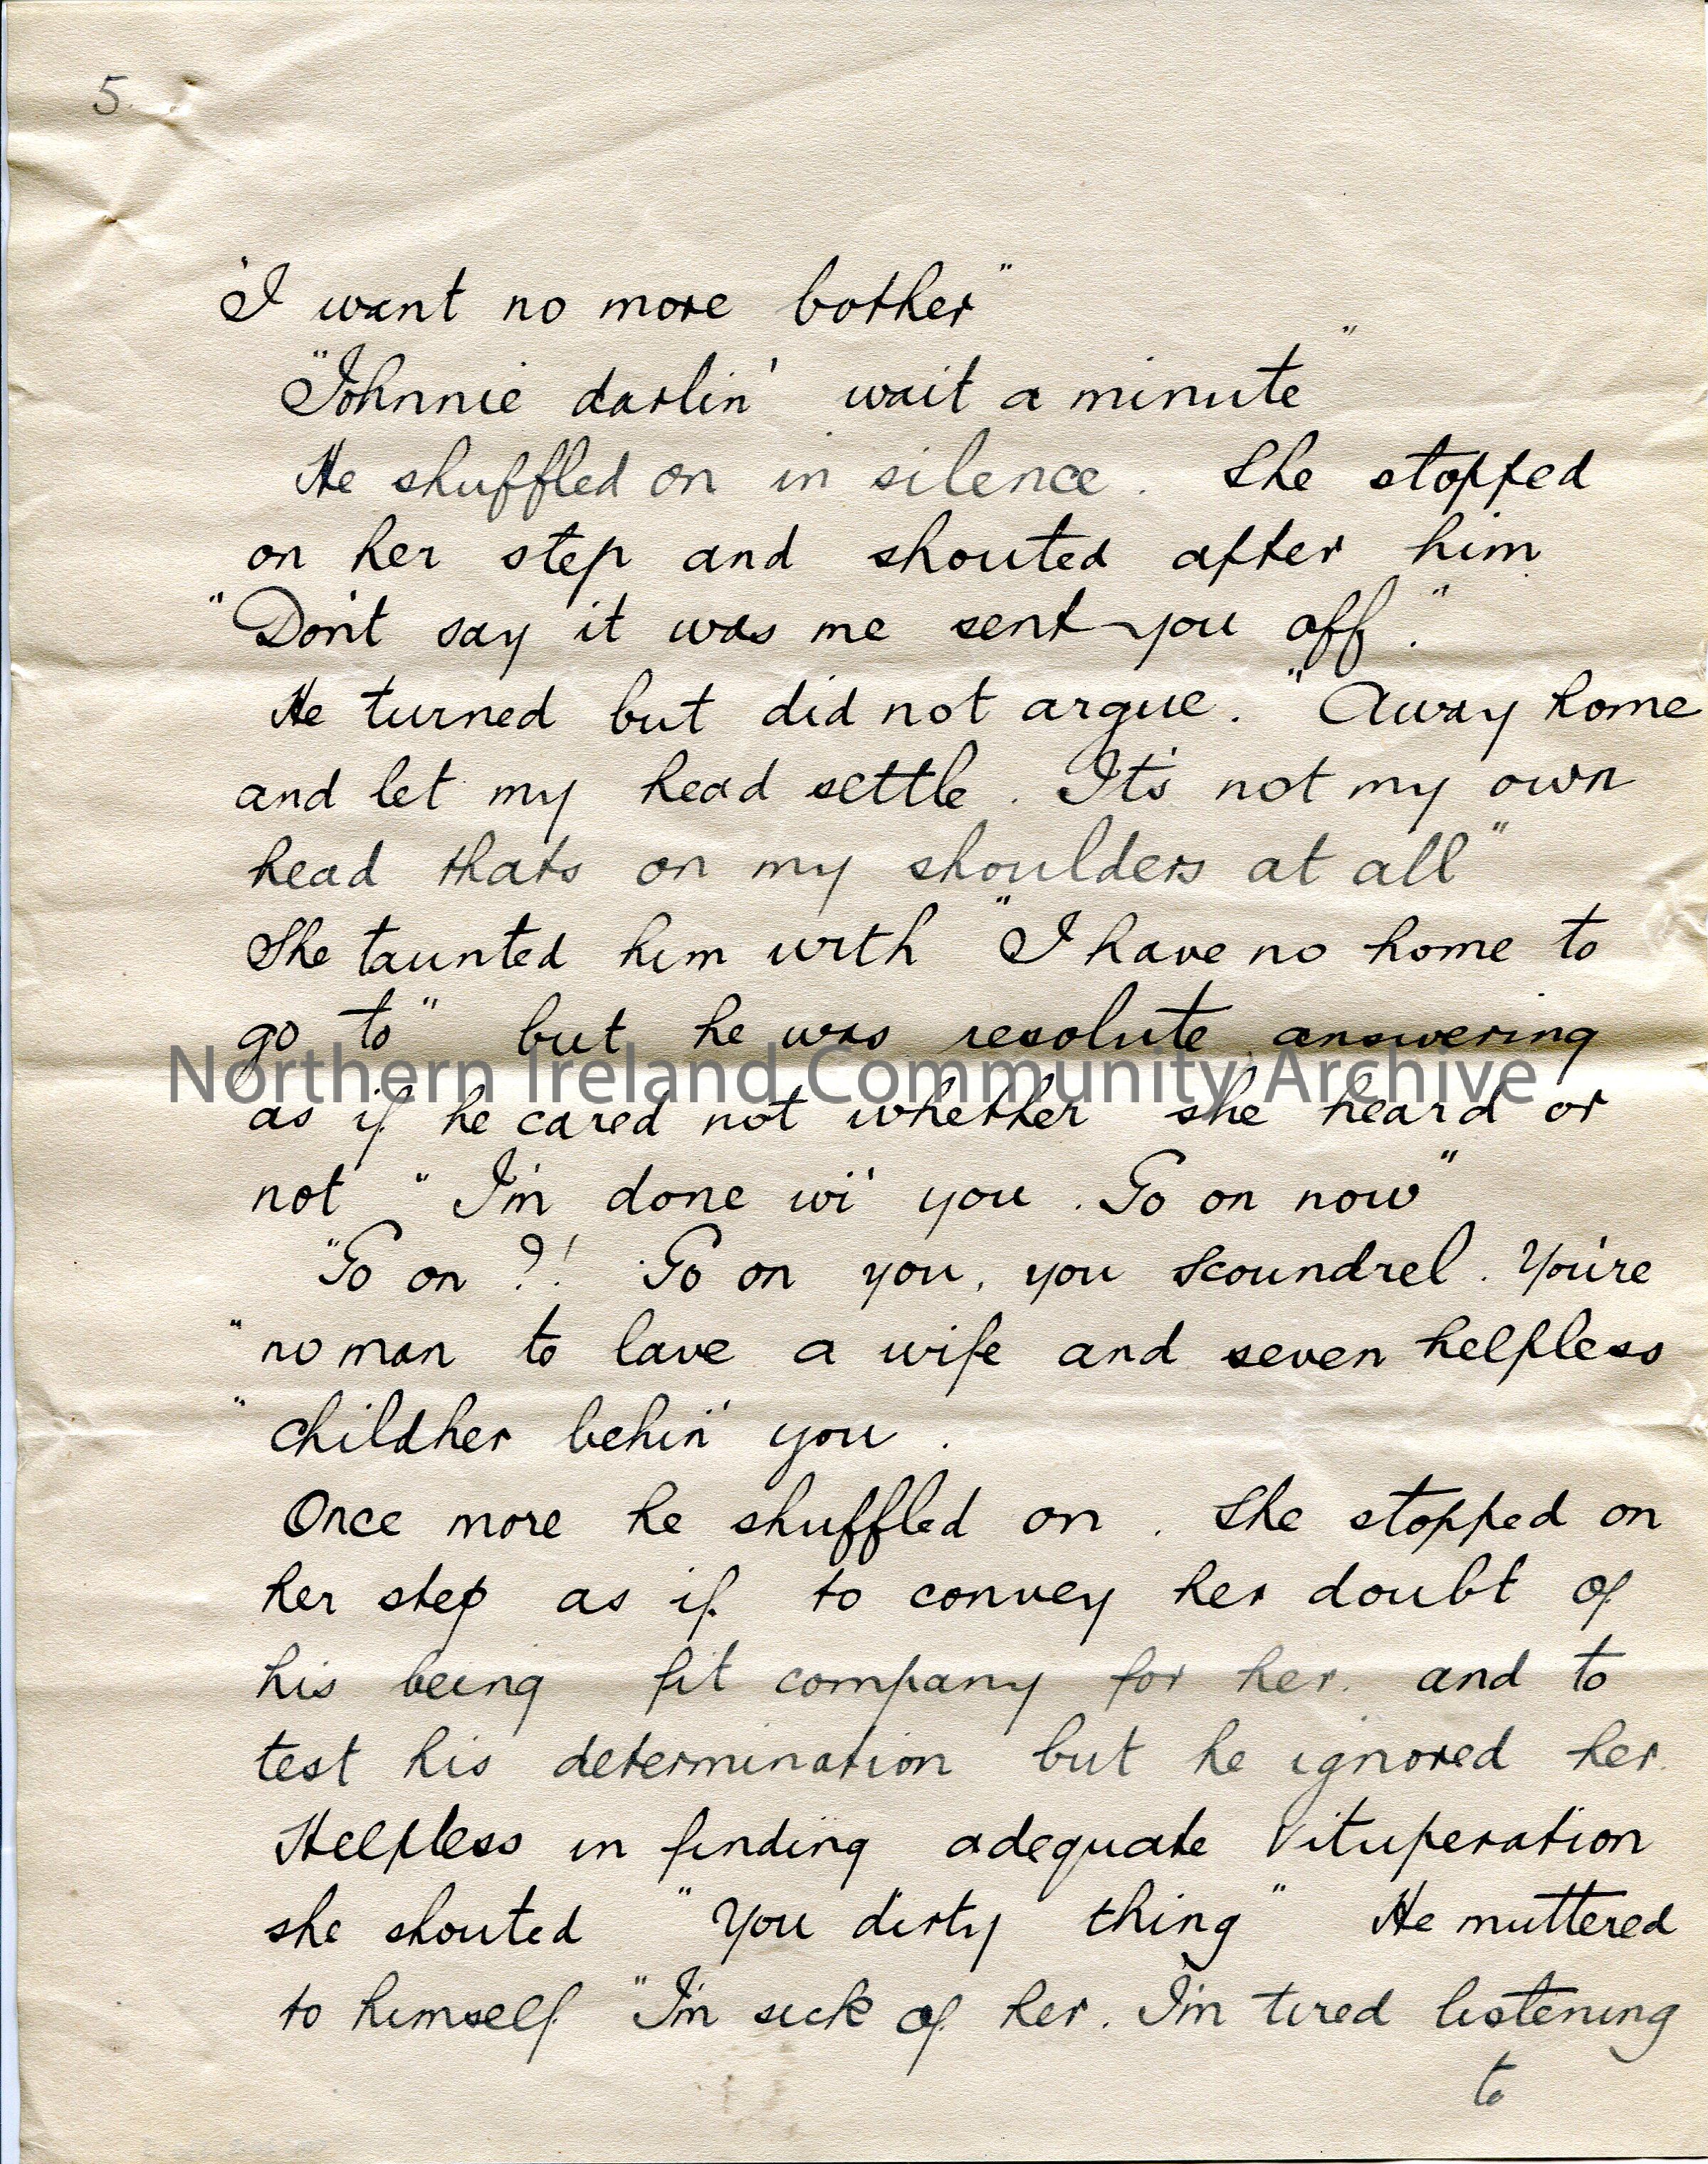 5.
"I want no more bother"
"Johnnie darlin' wait a minute"
He shuffled on in silence. She stopped
on her step and shouted after him
"Don't say it was me sent you off."
He turned but did not argue. "Away home
and let my head settle. It's not my own
head thats on my shoulders at all"
She taunted him with "I have no home to
go to" but he was resolute answering
Northern Ireland Community Archive
as if he cared not whether she heard or
not "I'm done wi' you. Go on now"
"Go on?! Go on you, you scoundrel. You're
"no man to lave a wife and seven helpless
"childher behin' you.
Once more he shuffled on. She stopped on
her step as if to convey her doubt of
his being fit company for her. and to
test his determination but he ignored her.
Helpless in finding adequate Vituperation
she shouted "You dirty thing" He muttered
to himself "I'm sick of her. I'm tired listening
to